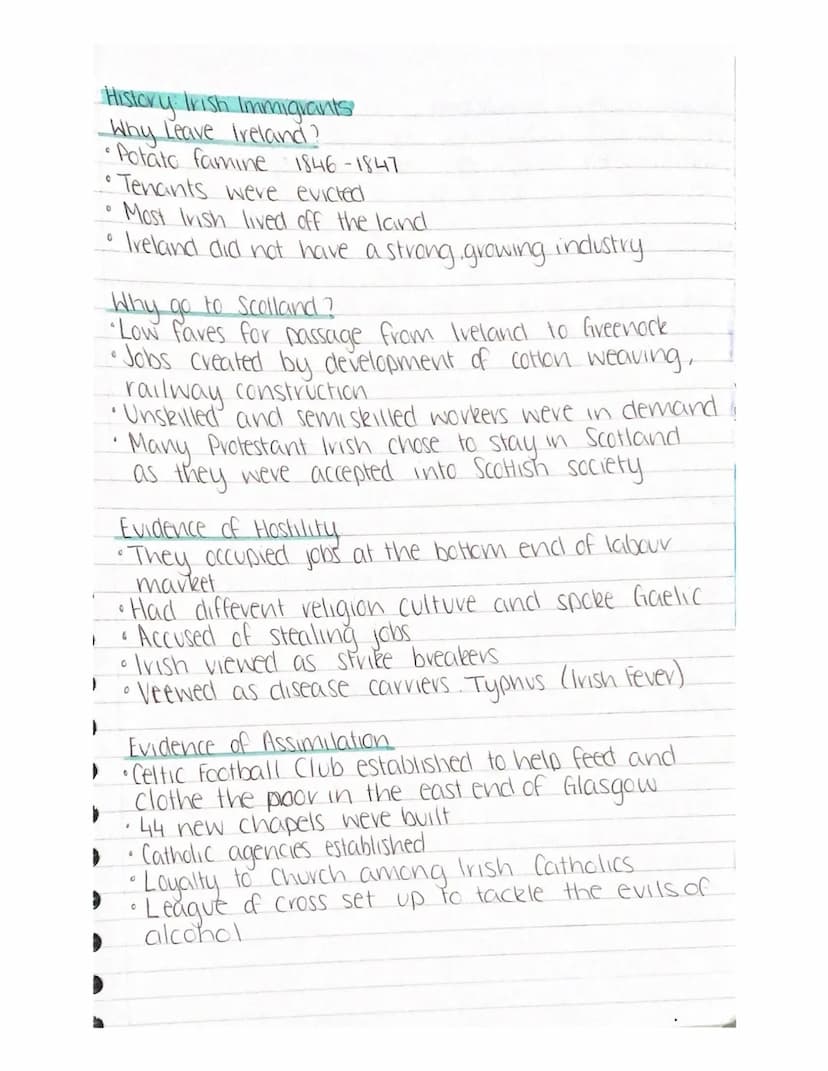 History: Irish Immigrants
Why Leave Ireland?
• Potato famine 1846 - 1847
• Tenants were evicted
• Most Irish lived off the land
• Ireland did not have a strong, growing industry
Why go to Scotland?
• Low fares for passage from Ireland to Greenock
• Jobs created by development of cotton weaving,
railway construction
• Unskilled and semi skilled workers were in demand
• Many Protestant Irish chose to stay in Scotland
as they were accepted into Scottish society
Evidence of Hostility
• They occupied jobs at the bottom end of labour
market
• Had different religion culture and spoke Gaelic
• Accused of stealing jobs
• Irish viewed as strike breakers
• Veewed as disease carriers. Typhus (Irish Fever)
Evidence of Assimilation
• Celtic Football Club established to help feed and
clothe the poor in the east end of Glasgow
• 44 new chapels were built
• Catholic agencies established
• Loyalty to Church among Irish Catholics
• League of Cross set up to tackle the evils of
alcohol